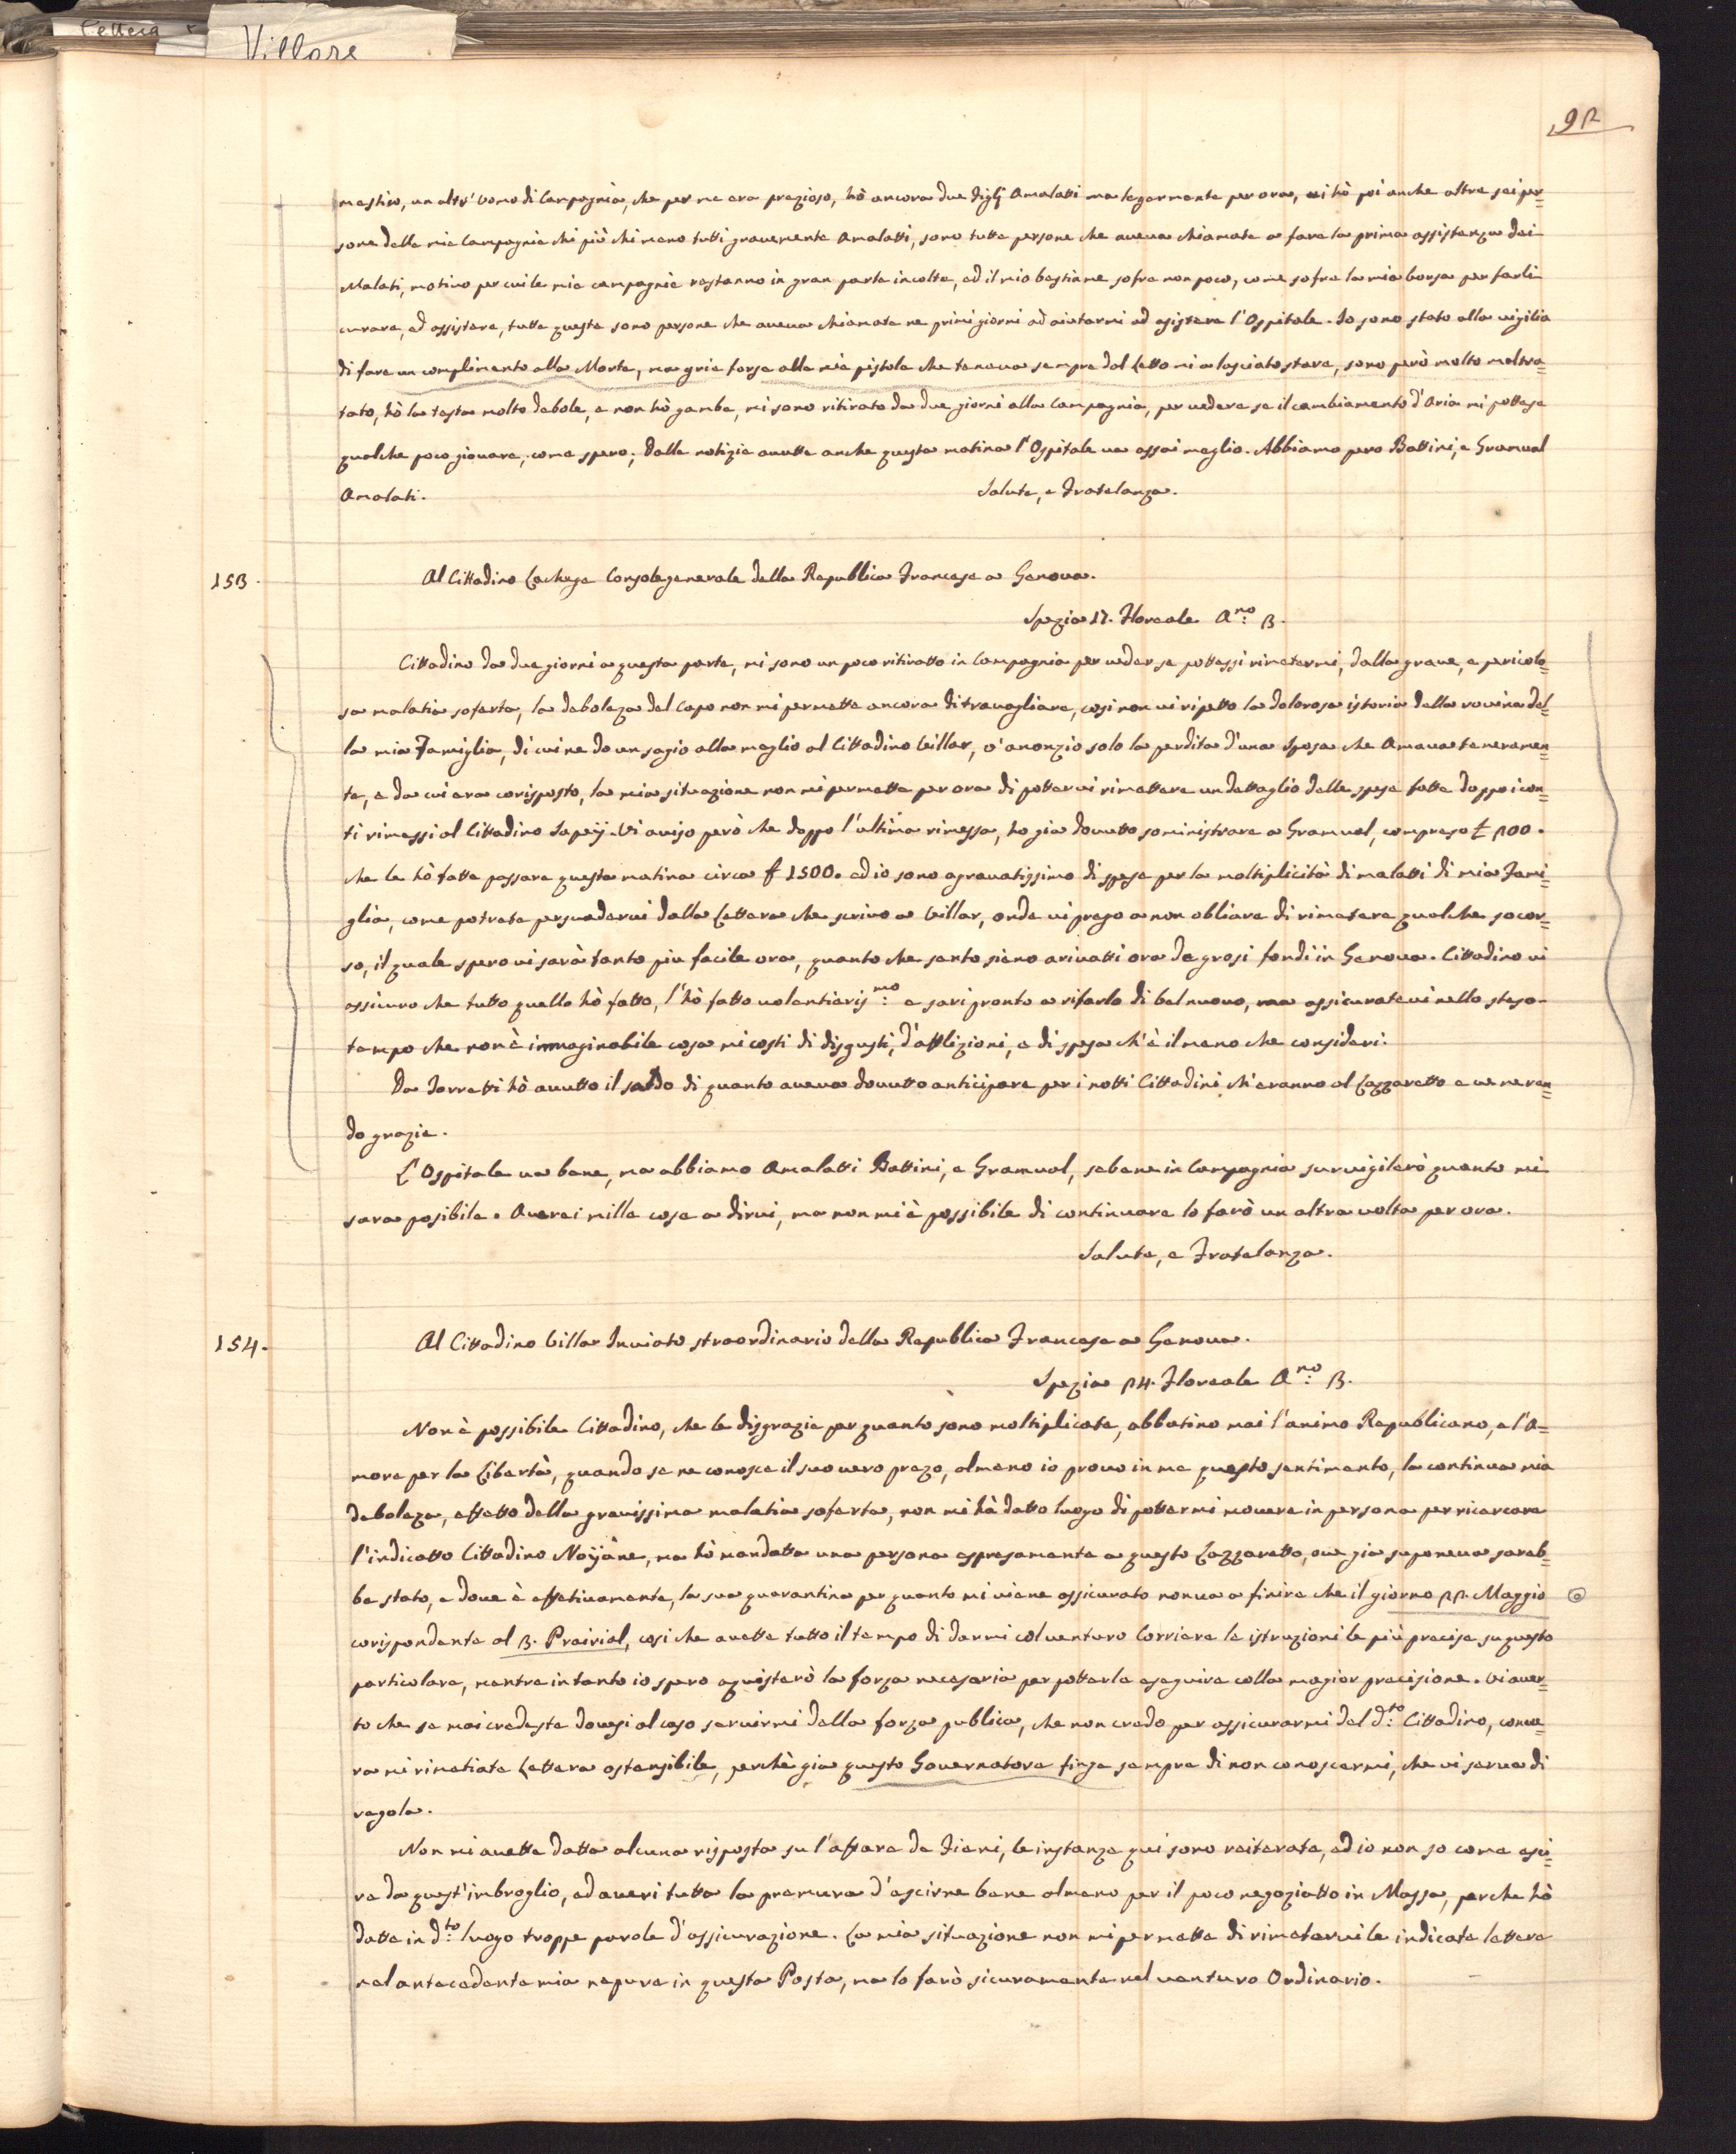 Lettera
Villars
92
mestico, un altr' Uomo di Campagnia, che per me era prezioso, hò ancora due Figlj Amalatti ma legermente per ora, vi hò poi anche altre sei per=
sone delle mie Campagnie chi più chi meno tutti gravemente Amalatti, sono tutte persone che aveva chiamate a fare la prima assistenza dei
Malati, motivo per cui le mie campagnie restanno in gran parte incolte, ed il mio bestiame sofre non poco, come sofre la mia borsa per farli
curare, ed assistere, tutte queste sono persone che aveva chiamate ne primi giorni ad aiutarmi ad asistere l'Ospitale. Io sono stato alla vigilia
di fare un complimento alla Morte, ma grie forse alle mie pistole che teneva sempre dal Letto mi a lasciato stare, sono però molto maltra=
tato, hò la testa molto debole, e non hò gambe, mi sono ritirato da due giorni alla Campagnia, per vedere se il cambiamento d'Aria mi pottese
qualche poco giovare, come spero; Dalle notizie avutte anche questa matina l'Ospitale va assai meglio. Abbiamo pero Battini, e Gramual
Amalati. Salute, e Fratelanza.
153. Al Cittadino Lachese Console generale della Republica Francese a Genova.
Spezia 17. Floreale Anno: 3.
Cittadino da due giorni a questa parte, mi sono un poco ritiratto in Campagnia per veder se pottessi rimetermi, dalla grave, e pericolo=
sa malatia soferta, la deboleza del capo non mi permette ancora di travagliare, cosi non vi ripetto la dolorosa istoria della rovina del=
la mia Famiglia, di cui ne do un sagio alla meglio al Cittadino Villar, v'anonzio solo la perdita d'una Sposa che Amava teneramen=
te, e da cui era corisposto, la mia situazione non mi permette per ora di pottervi rimettere un dettaglio delle spese fatte doppo i con=
ti rimessi al Cittadino Sapeÿ. Vi aviso però che doppo l'ultima rimessa, ho gia dovutto soministrare a Gramual, compreso £ 200.
che le hò fatte passare questa matina circa £ 1500. ed io sono agravatissimo di spese per la moltiplicità di malatti di mia Fami=
glia, come potrete persuadervi dalla Lettera che scrivo a Villar, onde vi prego a non obliare di rimetere qualche socor=
so, il quale spero vi sarà tanto piu facile ora, quanto che sento sieno arivatti ora de grosi fondi in Genova. Cittadino vi
assicuro che tutto quello hò fatto, l'hò fatto volentieris:mo e sarei pronto a rifarlo di bel nuovo, ma assicuratevi nello steso
tempo che non è immaginabile cosa mi costi di disgusti, d'afflizioni, e di spesa ch'è il meno che consideri.
Da Torretti hò avutto il saldo di quanto aveva dovutto anticipare per i notti Cittadini ch'eranno al Lazzaretto e ve ne ren=
do grazie.
L'Ospitale va bene, ma abbiamo Amalatti Battini, e Gramual, sebene in Campagnia survigilerò quanto mi
sara posibile. Averei mille cose a dirvi, ma non mi è possibile di continuare lo farò un altra volta per ora.
Salute, e Fratelanza.
154. Al Cittadino Villar Inviato straordinario della Republica Francese a Genova.
Spezia 24. Floreale Anno: 3.
Non è possibile Cittadino, che le disgrazie per quanto sono moltiplicate, abbatino mai l'animo Republicano, e l'A=
more per la Libertà, quando se ne conosce il suo vero prezo, almeno io provo in me questo sentimento, la continua mia
deboleza, effetto della gravissima malatia soferta, non mi hà datto luogo di pottermi movere in persona per ricercare
l'indicatto Cittadino Noÿane, ma hò mandatta una persona espresamente a questo Lazzaretto, ove gia suponeva sareb=
be stato, e dove è effetivamente, la sua quarantina per quanto mi viene assicurato non va a finire che il giorno 22. Maggio
corispondente al 3. Prairial, cosi che avette tutto il tempo di darmi col venturo Corriere le istruzioni le più precise su questo
particolare, mentre intanto io spero aquisterò la forza necesaria per potterle eseguire colla magior precisione. Vi aver=
to che se mai credeste dovesi al caso servirmi della forza publica, che non credo per assicurarmi del d:to Cittadino, conve=
ra mi rimetiate Lettera ostensibile, perchè gia questo Governatore finge sempre di non conoscermi, che vi serva di
regola.
Non mi avette datta alcuna risposta su l'affare de Fieni, le instanze qui sono reiterate, ed io non so come esci=
re da quest' imbroglio, ed averei tutta la premura d'escirne bene almeno per il poco negoziatto in Massa, perche hò
datte in d:to luogo troppe parole d'assicurazione. La mia situazione non mi permette di rimetervi le indicate lettere
nel antecedente mia nepure in questa Posta, ma lo farò sicuramente nel venturo Ordinario.